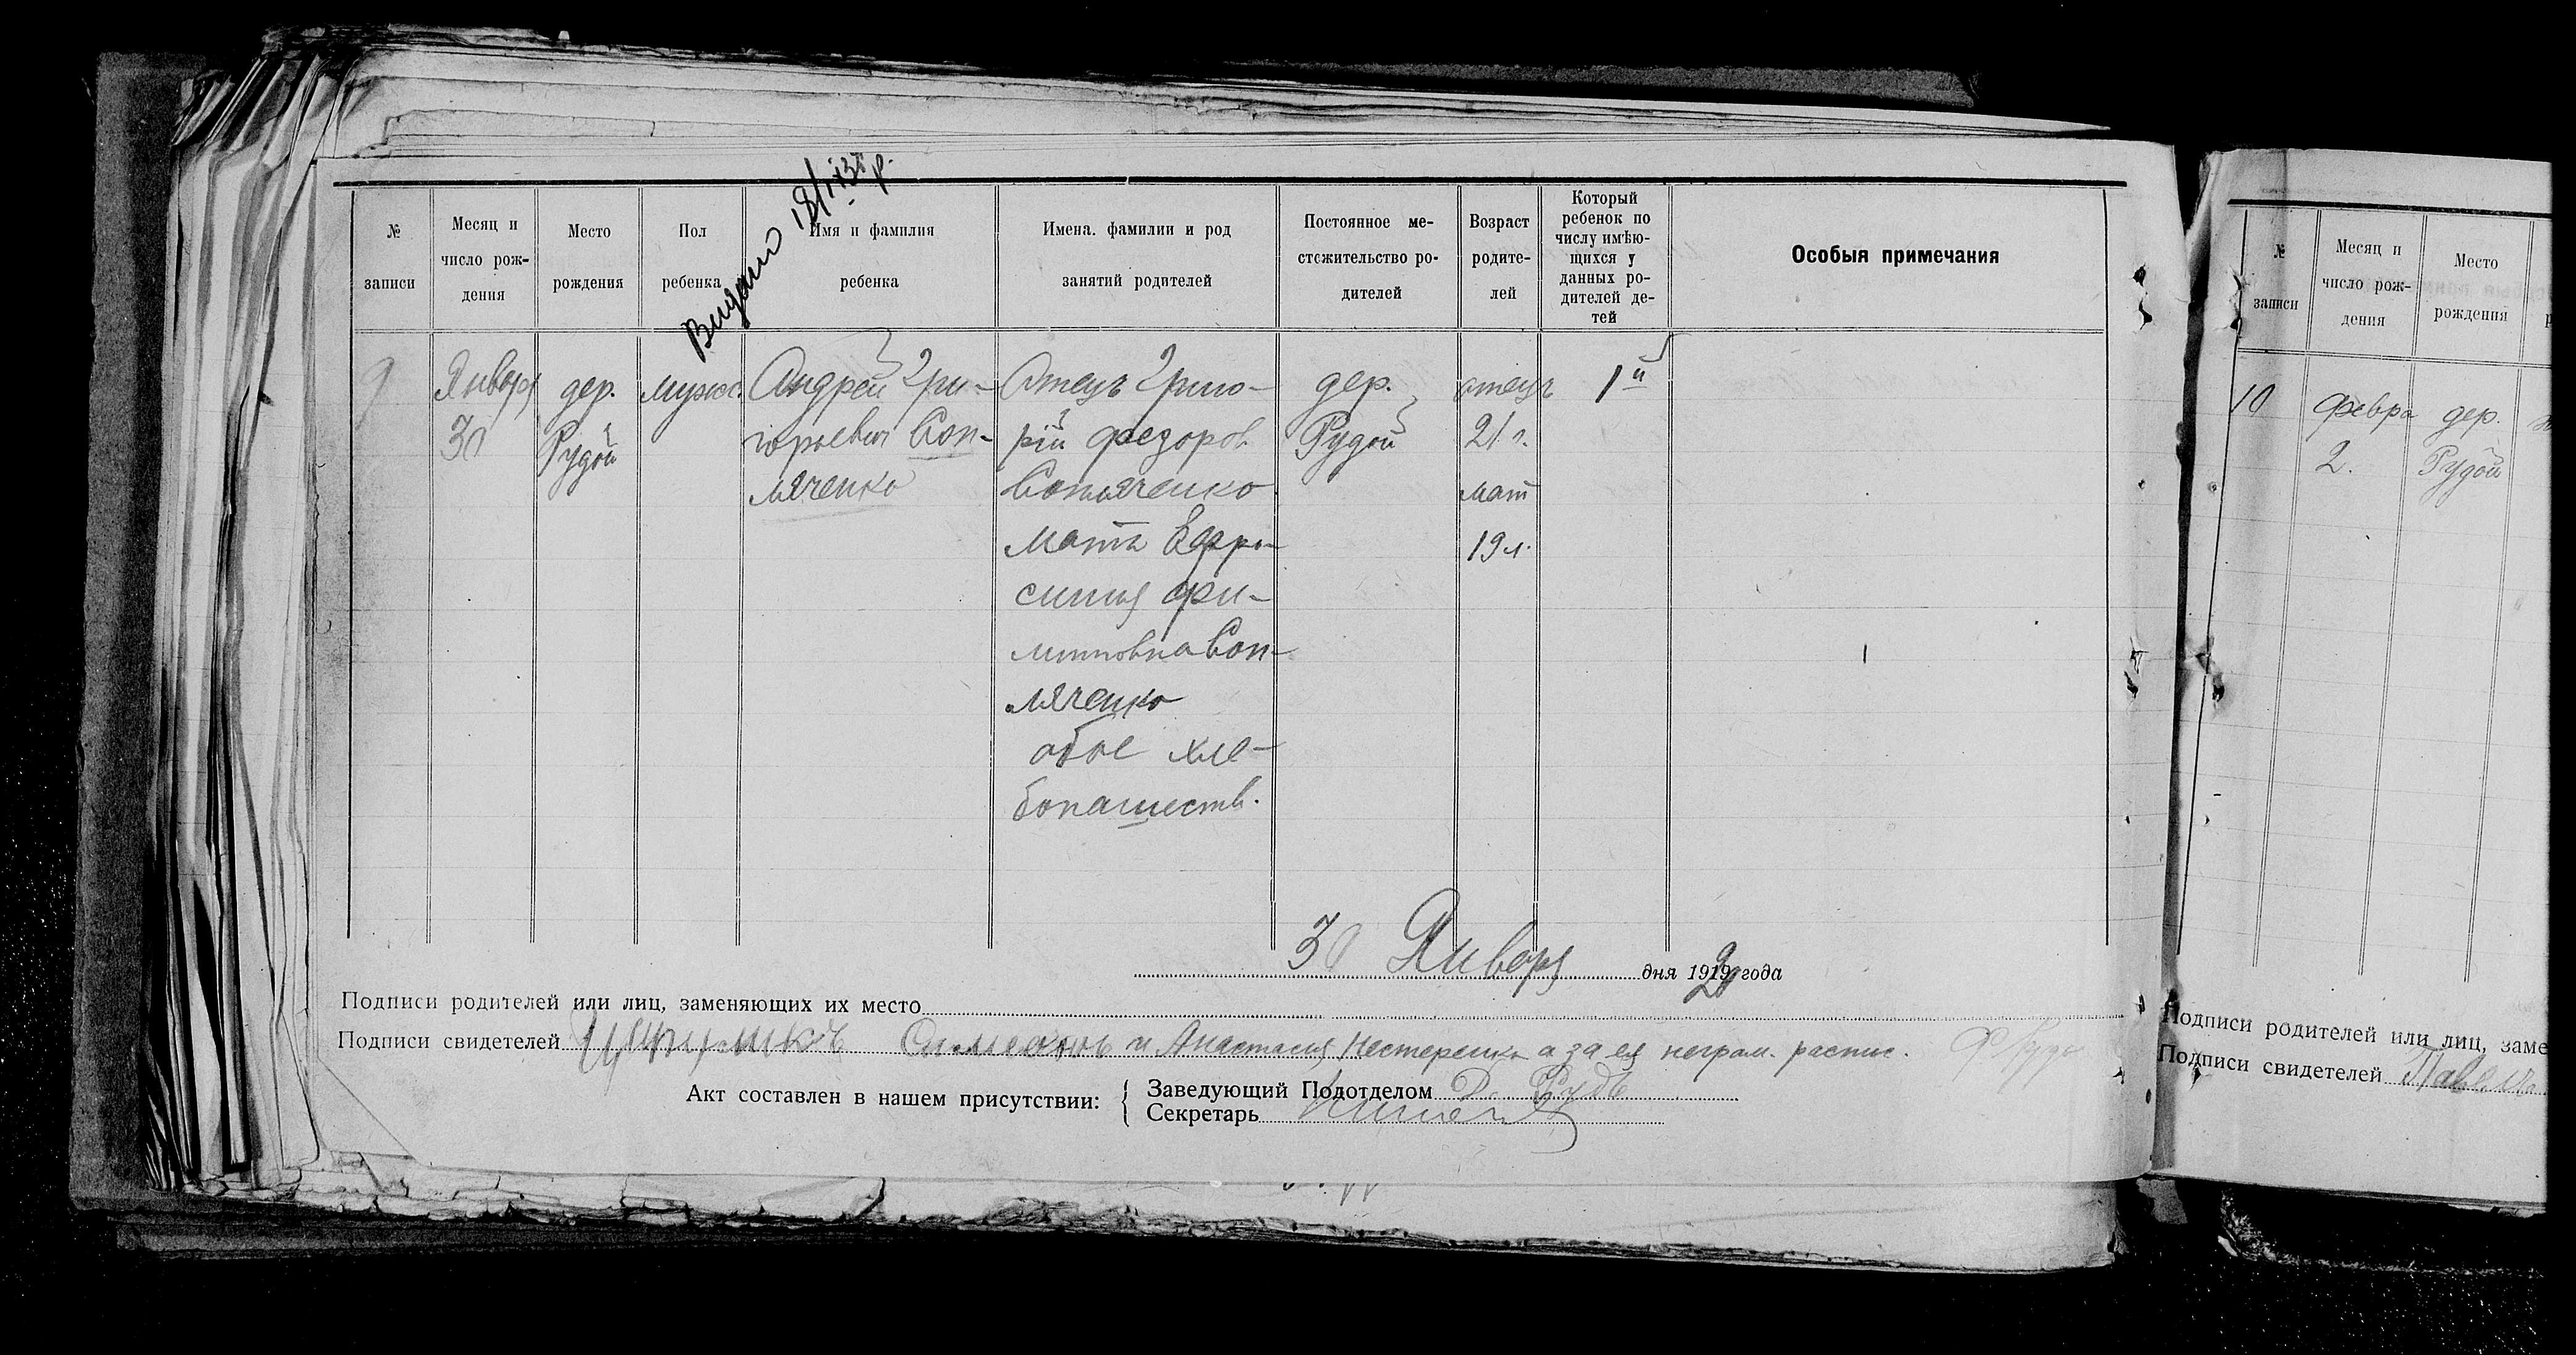 Видано 18/I 193 р.
№ записи
Месяц и число рож-дения
Место рождения
Пол ребенка
Имя и фамилия ребенка
Имена. фамилии и род занятий родителей
Постоянное ме-стожительство ро-дителей
Возраст родите-лей
Который ребенок по числу имѣю-щихся у данных ро-дителей де-тей
Особыя примечания
9
Январ 30
дер. Рудой
мужс.
Андрей Гри-
горьевич Соп-
ляченко
Отецъ Григо-
рій Федоров
Сопляченко
Мать Ефро-
синия Фи-
липповна Соп-
ляченко
обое хле-
бопашеств.
дер.
Рудой
отецъ
21 г.
мат
19 л.
1й
30 Января дня 1920 года
Подписи родителей или лиц, заменяющих их место
Подписи свидетелей Симеонъ и Анастасия Нестеренко а за ея неграм. распис.
Акт составлен в нашем присутствии:
Заведующий Подотделом Рудь
Секретарь
№ записи
Месяц и число рож-дения
Место рождения
10
Февра 2.
дер. Рудой
Подписи родителей или лиц, заме
Подписи свидетелей Павел